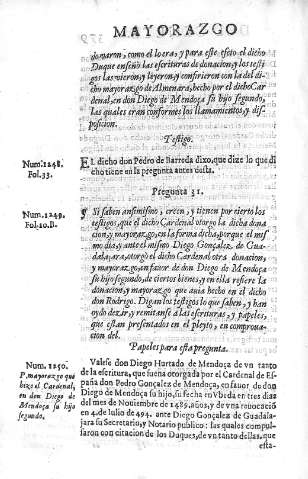 MAYORAZGO
donaron, como el loera, y para este efeto el dicho
Duque enseñò las escrituras de donacion, y los testi
gos las vieron, y leyeron, y confirieron con la del di-
cho mayorazgo de Almenara, hecho por el dicho Car
denal, en don Diego de Mendoça su hijo segundo,
las quales eran conformes los llamamientos, y dis
posicion.
Testigo.
Num. 1248.
Fol. 33.
El dicho don Pedro de Barreda dixo, que dize lo que di
cho tiene en la pregunta antes desta.
Pregunta 31.
Num. 1249.
Fol. 10. B.
Si saben ansimismo, creen, y tienen por cierto los
testigos, que el dicho Cardenal otorgò la dicha dona
cion, y mayorazgo, en la forma dicha, porque el mis
mo dia, y ante el mismo Diego Gonçalez, de Gua-
dalajara, otorgò el dicho Cardenal otra donacion,
y mayorazgo, en favor de don Diego de Mendoça
su hijo segundo, de ciertos bienes, y en ella refiere la
donacion, y mayorazgo que avia hecho en el dicho
don Rodrigo. Digan los testigos lo que saben, y han
oydo dezir, y remitanse à las escrituras, y papeles,
que estan presentados en el pleyto, en comprova-
cion del.
Papeles para esta pregunta.
Num. 1250.
P. mayorazgo que
hizo el Cardenal,
en don Diego de
Mendoça su hijo
segundo.
Valese don Diego Hurtado de Mendoça de vn tanto
de la escritura, que fuena otorgada por el Cardenal de Es
paña don Pedro Gonçalez de Mendoça, en favor de don
Diego de Mendoça su hijo, su fecha en Vbeda en tres dias
del mes de Noviembre de 1489. años, y de vna revocaciõ
en 4. de Iulio de 494. ante Diego Gonçalez de Guadala-
jara su Secretario, y Notario publico: las quales compul-
saron con citacion de los Duques, de vn tanto dellas, que
esta-